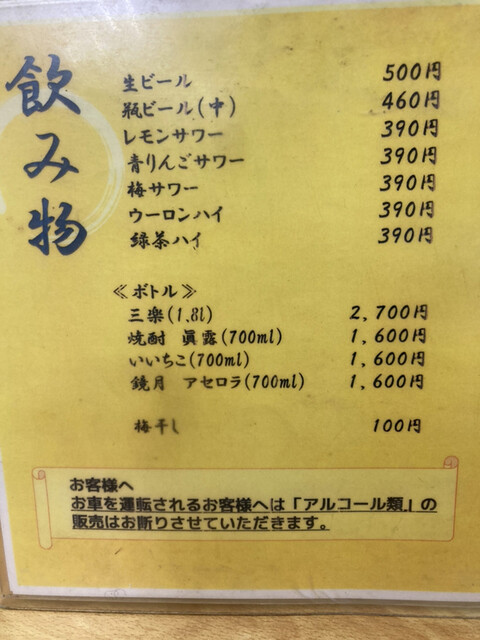 飲み物
生ビール 500円
瓶ビール(中) 460円
レモンサワー 390円
青りんごサワー 390円
梅サワー 390円
ウーロンハイ 390円
緑茶ハイ 390円
≪ボトル≫
三楽(1.8l) 2,700円
焼酎 眞露(700ml) 1,600円
いいちこ(700ml) 1,600円
鏡月 アセロラ(700ml) 1,600円
梅干し 100円
お客様へ
お車を運転されるお客様へは「アルコール類」の
販売はお断りさせていただきます。